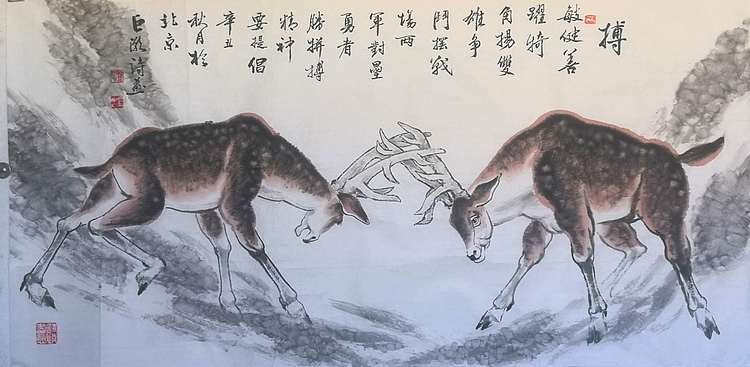 搏
敏健善
躍犄
角揚雙
雄爭
鬥擺戰
場兩
軍對壘
勇者
勝拼搏
精神
要提倡
辛丑
秋月於
北京